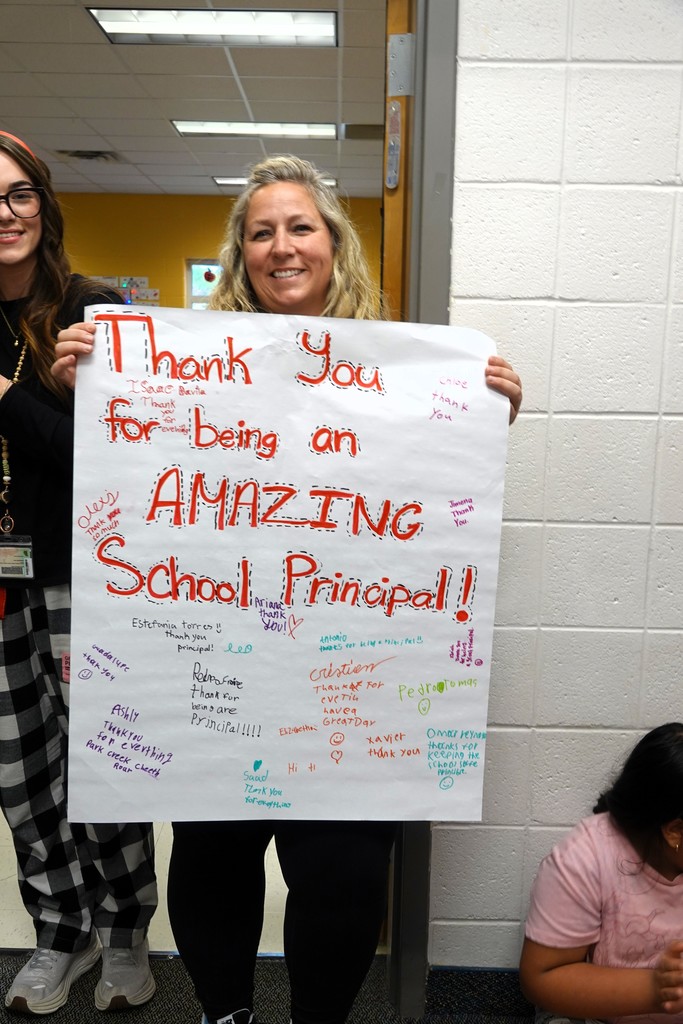 Thank You
for being an
AMAZING
School Principal!
Isaac
Thank
you
for
evething
Chloe
thank
you
Alexis
Thank you
so much
Jimena
Thank
You.
Ariana
thank
you!
Estefania torres
thank you
principal!
Leo
Antonio
Guadalupe
thank you
Pedro
thank for
being are
principal!!!!
cristian
Thank for
evetin
have a
Great Day
Pedro Tomas
Ashly
Thank you
for everything
Park Creek
Elizabeth
xavier
thank you
Omar
thanks for
keeping the
school safe
Saad
Thank you
for everything
Hi